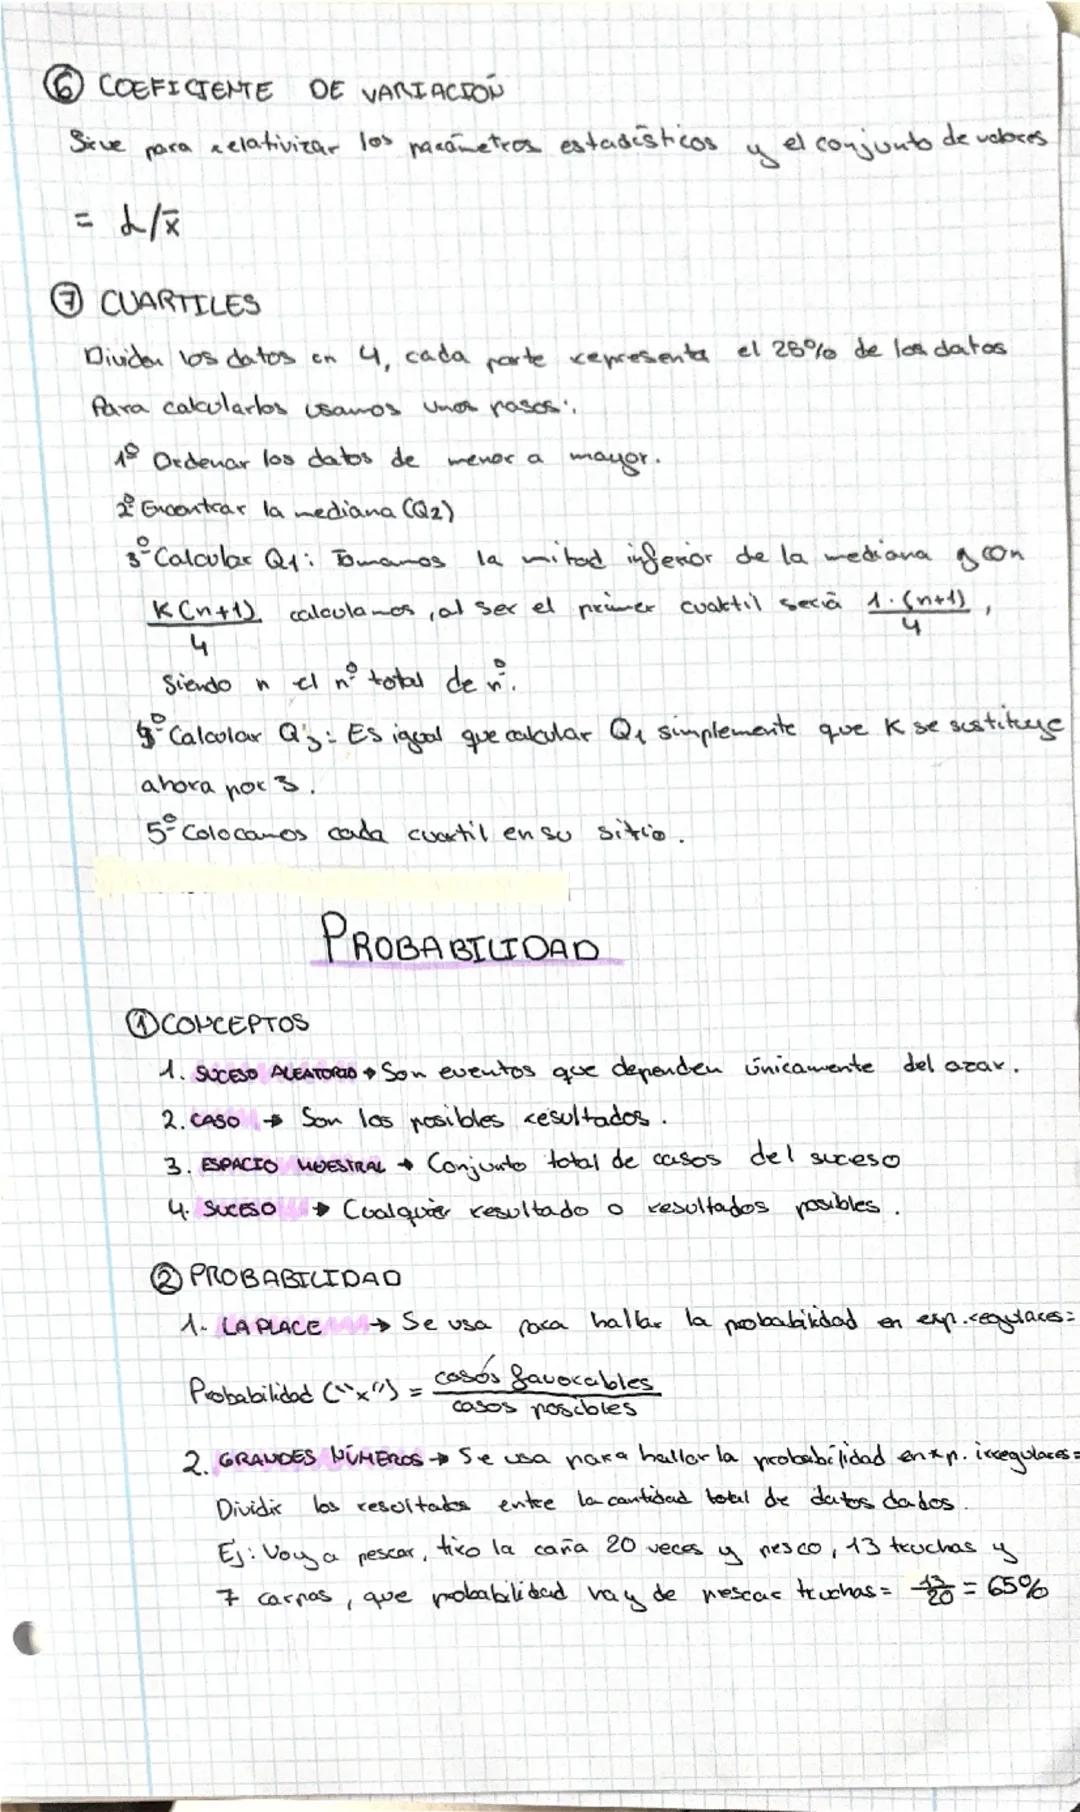 ⑥ COEFICIENTE DE VARIACIÓN
Sirve para relativizar los parámetros estadísticos y el conjunto de valores
= d/x̄
⑦ CUARTILES
Dividen los datos en 4, cada parte representa el 25% de los datos
Para calcularlos usamos unos pasos:
1º Ordenar los datos de menor a mayor.
2º Encontrar la mediana (Q2)
3º Calcular Q1: Tomamos la mitad inferior de la mediana y con
K(n+1)/4 calculamos, al ser el primer cuartil sería 1·(n+1)/4,
Siendo n el nº total de nº.
4º Calcular Q3: Es igual que calcular Q1 simplemente que K se sustituye
ahora por 3.
5º Colocamos cada cuartil en su sitio.
PROBABILIDAD
① CONCEPTOS
1. SUCESO ALEATORIO → Son eventos que dependen únicamente del azar.
2. CASO → Son los posibles resultados.
3. ESPACIO MUESTRAL → Conjunto total de casos del suceso
4. SUCESO → Cualquier resultado o resultados posibles.
② PROBABILIDAD
1. LAPLACE → Se usa para hallar la probabilidad en exp. regulares=
Probabilidad ("x") = casos favorables/casos posibles
2. GRANDES NÚMEROS → Se usa para hallar la probabilidad en exp. irregulares=
Dividir los resultados entre la cantidad total de datos dados.
Ej: Voy a pescar, tiro la caña 20 veces y pesco, 13 truchas y
7 carpas, que probabilidad hay de pescar truchas= 13/20 = 65%